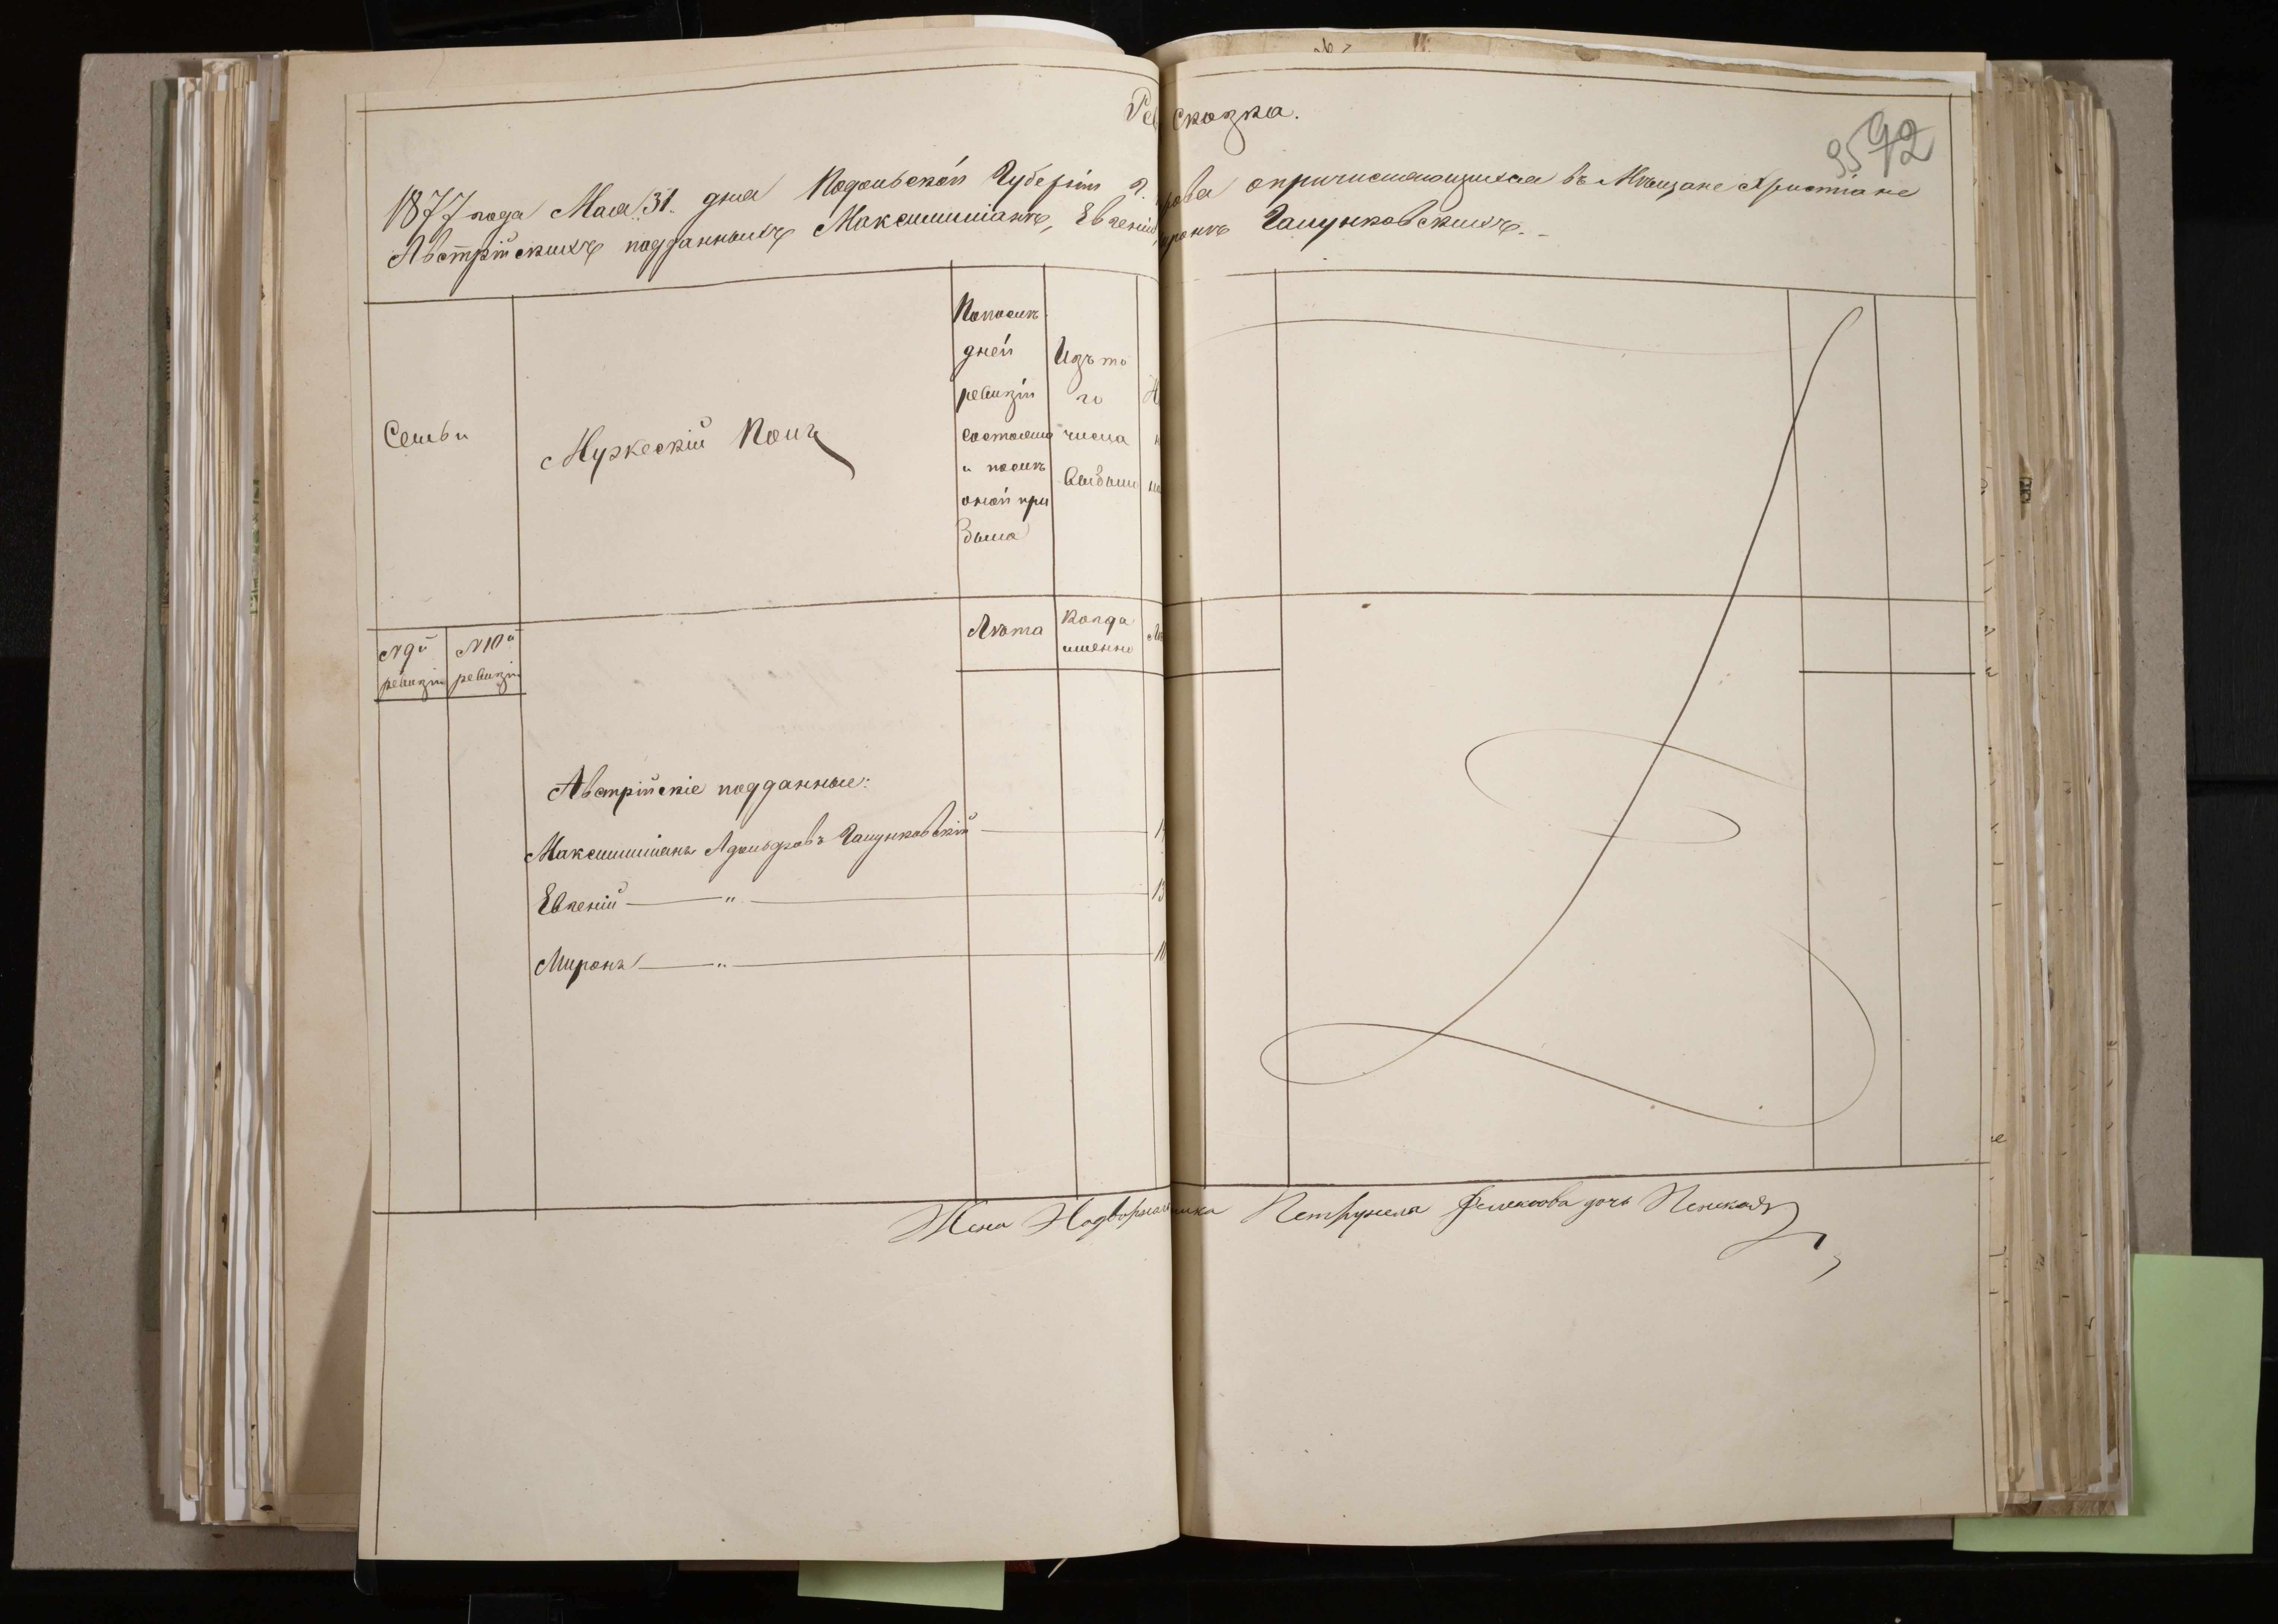 Ре сказка.
9592
1877 года Мая 31. дня Подольской Губерніи г. рова опричисляющихся въ Мѣщане Христіане
Австрійскихъ подданныхъ Максимиліанѣ, Евгеніи, иронѣ Галунковскихъ. –
Семьи
Мужескій Полъ
Послѣ
дней
ревизіи
состояло
и послѣ
оной при
было
Изъ то
го
числа
выбыло
№ 9й ревизіи
№ 10й ревизіи
Лѣта
Когда именно
Австрійскіе подданные:
Максимиліанъ Адольфовъ Галунковскій
Евгеній — " — 13
Миронъ — " — 10
Жена Надворнаго ника Петрунела дочь